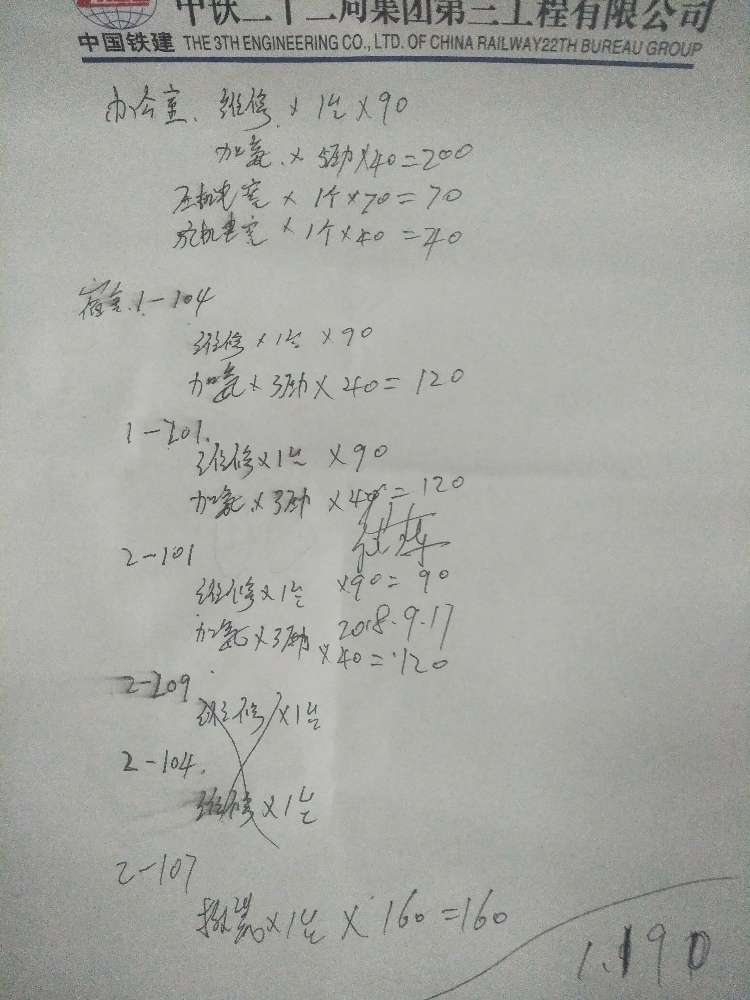 中铁二十二局集团第三工程有限公司
中国铁建 THE 3TH ENGINEERING CO., LTD. OF CHINA RAILWAY22TH BUREAU GROUP
办公室. 维修 × 1台 × 90
加氟 × 5斤 × 40 = 200
压机电容 × 1个 × 70 = 70
电容 × 1个 × 40 = 40
宿舍. 1-104
维修 × 1台 × 90
加氟 × 3斤 × 40 = 120
1-201.
维修 × 1台 × 90
加氟 × 3斤 × 40 = 120
2-101
维修 × 1台 × 90 = 90
2018.9.17
加氟 × 3斤 × 40 = 120
2-209
维修 × 1台
2-104.
维修 × 1台
2-107
× 1台 × 160 = 160
1.190